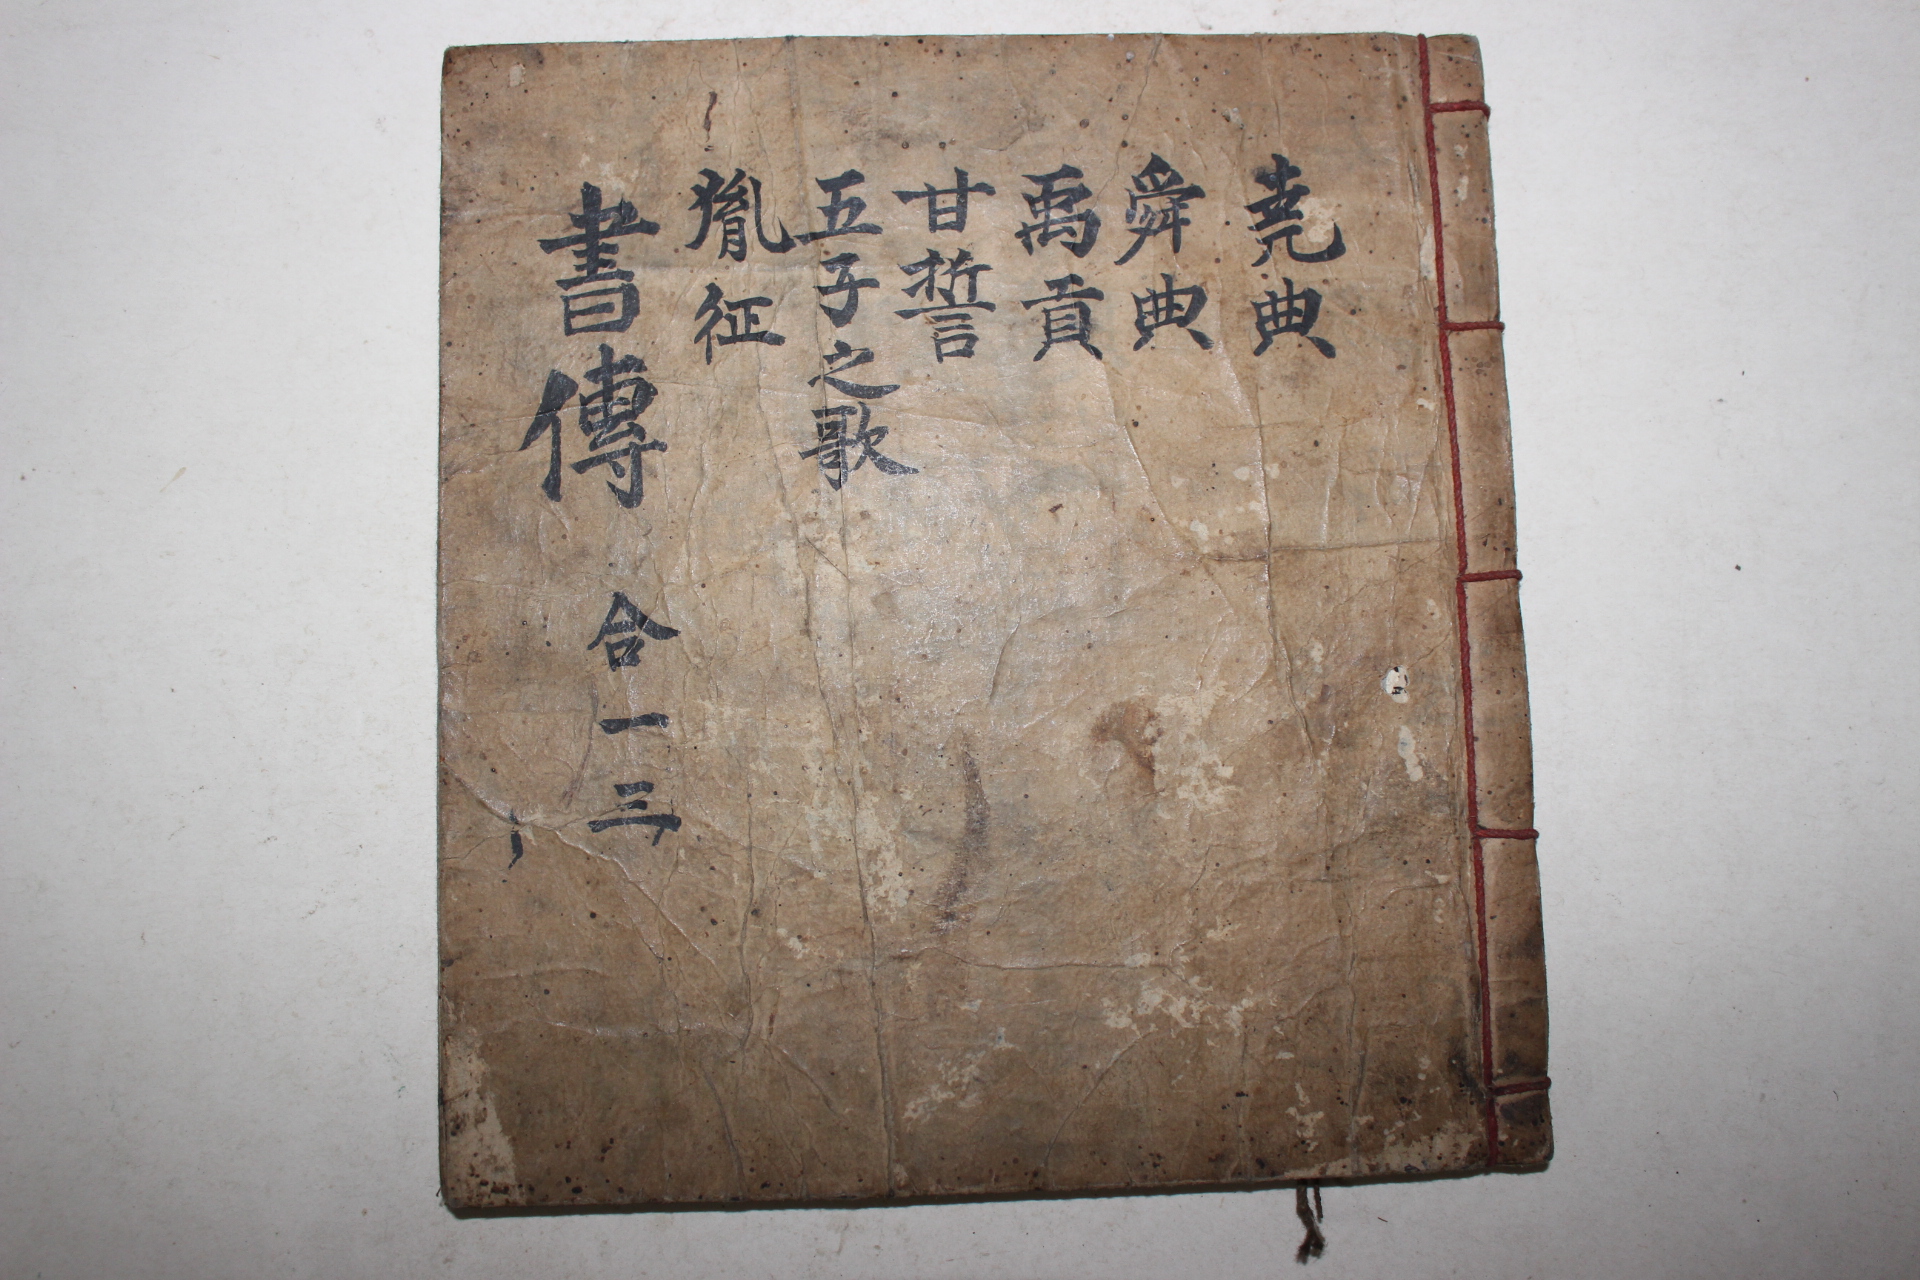 堯典
舜典
禹貢
甘誓
五子之歌
胤征
書傳 合一三